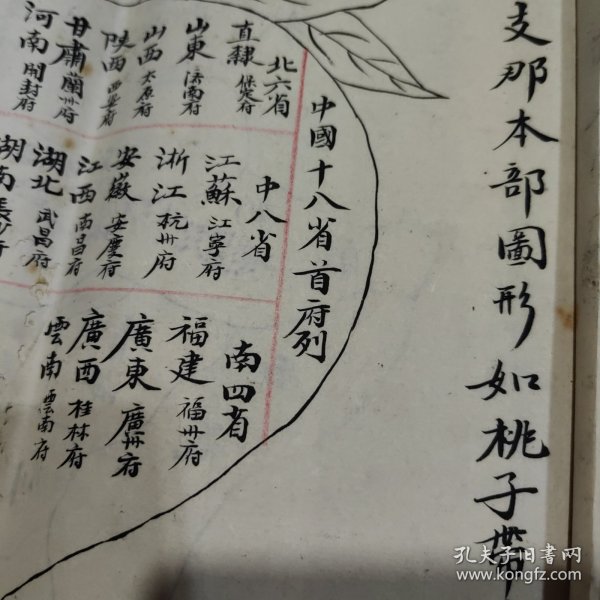 支那本部圖形如桃子帶
中國十八省首府列
北六省
直隸 保定府
山東 濟南府
山西 太原府
陝西 西安府
甘肅 蘭州府
河南 開封府
中八省
江蘇 江寧府
浙江 杭州府
安徽 安慶府
江西 南昌府
湖北 武昌府
湖南 長沙府
南四省
福建 福州府
廣東 廣州府
廣西 桂林府
雲南 雲南府
孔夫子旧书网
www.kongfz.com